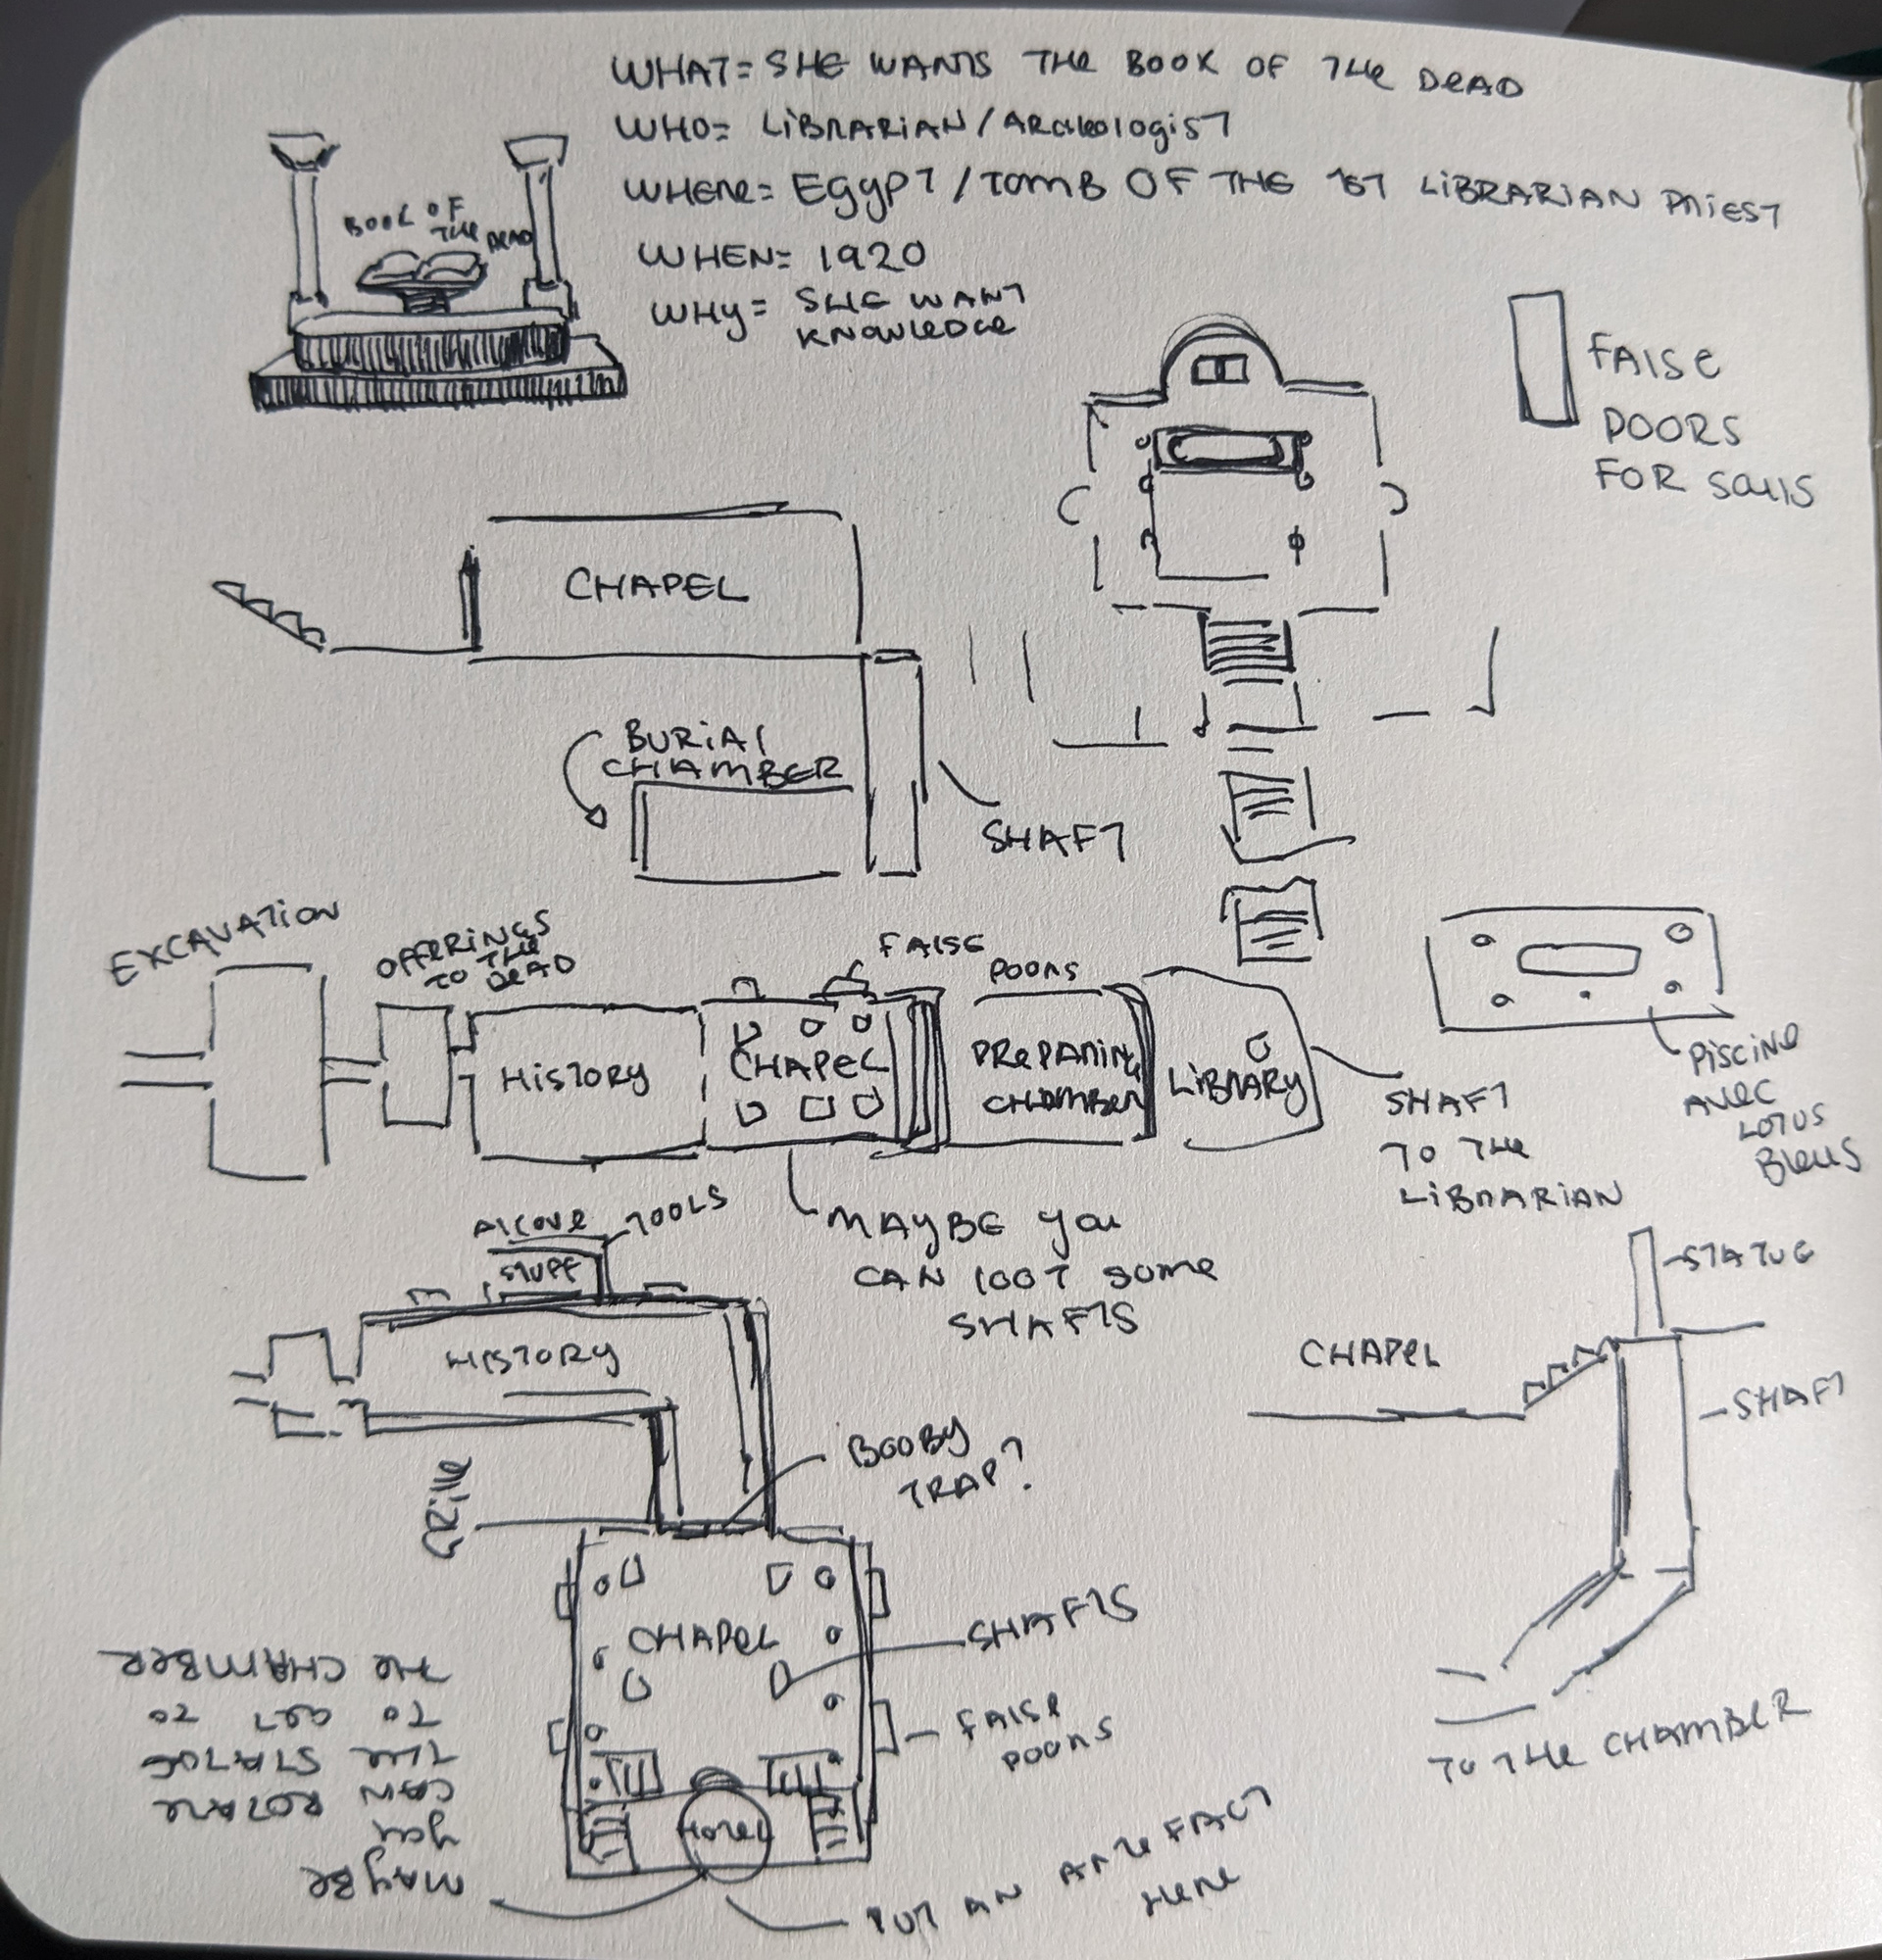 WHAT= SHE WANTS THE BOOK OF THE DEAD
WHO= LIBRARIAN/ARCHEOLOGIST
WHERE= EGYPT/TOMB OF THE 1ST LIBRARIAN PRIEST
WHEN= 1920
WHY= SHE WANT
KNOWLEDGE
BOOK OF
THE DEAD
FALSE
DOORS
FOR SOULS
CHAPEL
BURIAL
CHAMBER
SHAFT
EXCAVATION
OFFERINGS
TO THE
DEAD
FALSE
DOORS
HISTORY
CHAPEL
PREPARING
CHAMBER
LIBRARY
SHAFT
TO THE
LIBRARIAN
PISCINE
AVEC
LOTUS
BLEUS
MAYBE YOU
CAN LOOT SOME
SHAFTS
ALCOVE
TOOLS
STUFF
HISTORY
BOOBY
TRAP?
CHAPEL
SHAFTS
FALSE
DOORS
PUT AN ARTEFACT
HERE
MAYBE
YOU
CAN ROTATE
THE STATUE
TO GET TO
THE CHAMBER
STATUE
CHAPEL
SHAFT
TO THE CHAMBER